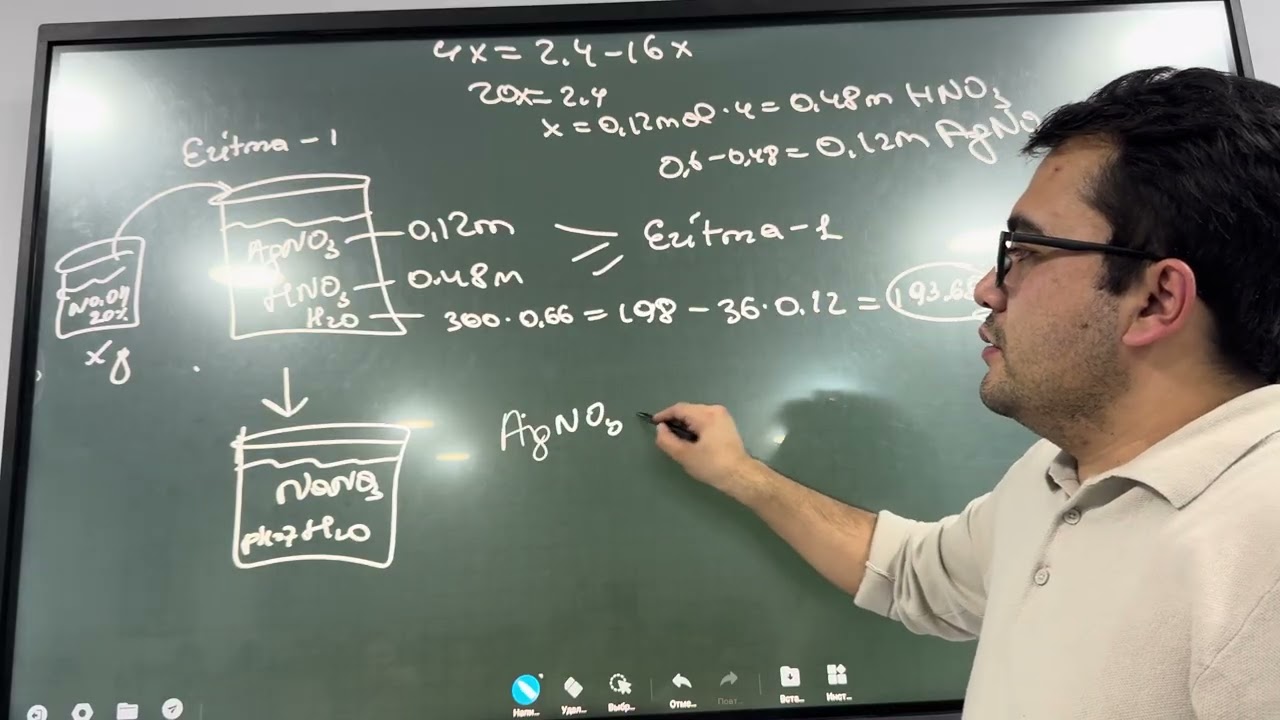 4x = 2.4 - 16x
20x = 2.4
x = 0,12mol · 4 = 0.48m HNO3
0,6 - 0,48 = 0.12m AgNO
Eritma - 1
AgNO3 — 0,12m
HNO3 — 0.48m
H2O — 300 · 0,66 = 198 - 36 · 0.12 =
Eritma - 1
20%
x g
NaNO3
pH=7 H2O
AgNO3
Напи...
Удал...
Выбр...
Отме...
Повт...
Вста...
Инст...